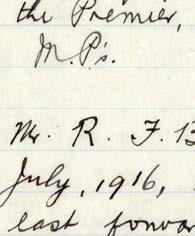 the Premier,
M.P's.
Mr. R. F. B
July, 1916,
last forwar